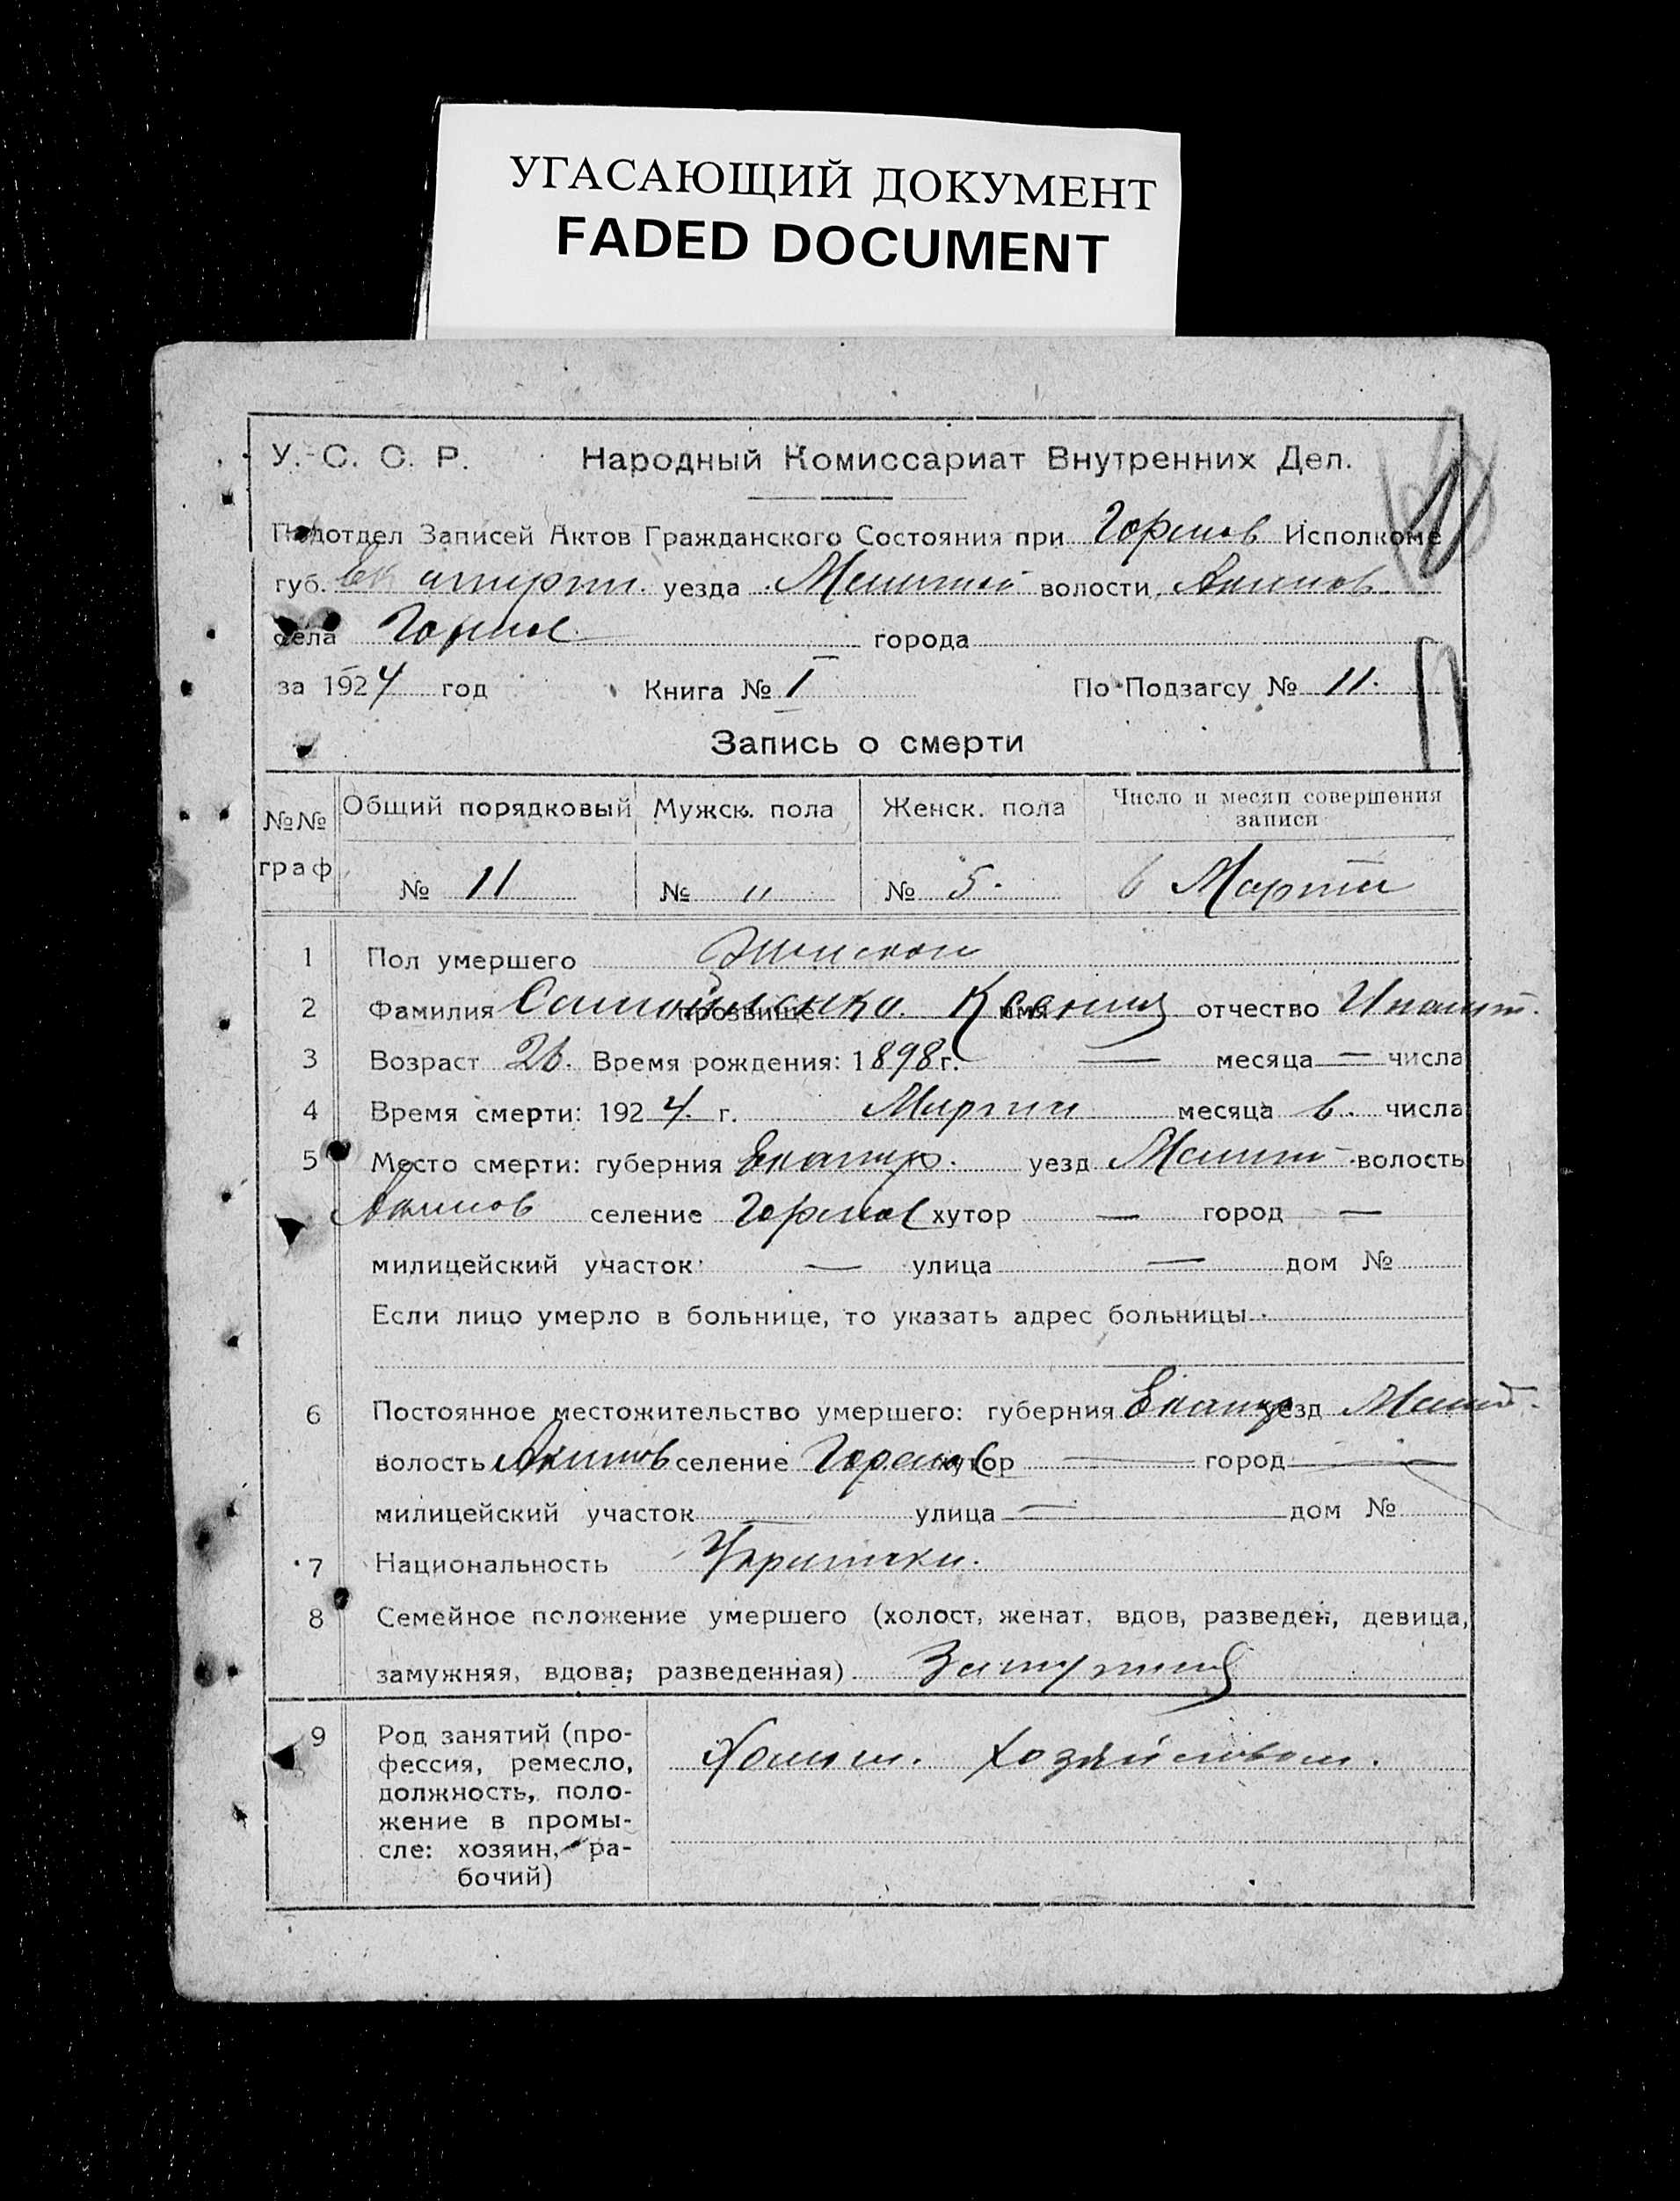 УГАСАЮЩИЙ ДОКУМЕНТ
FADED DOCUMENT
У. С. С. Р. Народный Комиссариат Внутренних Дел.
Подотдел Записей Актов Гражданского Состояния при Исполкоме
губ. уезда волости Акимов.
села города
за 1924 год Книга № I По Подзагсу № 11.
Запись о смерти
№№ граф Общий порядковый Мужск. пола Женск. пола Число и месяц совершения записи
№ 11 № " № 5. 6 Марта
1 Пол умершего Женский
2 Фамилия Самойленко. прозвище имя Ксения отчество
3 Возраст 26. Время рождения: 1898 г. — месяца — числа
4 Время смерти: 1924 г. Марта месяца 6. числа
5 Место смерти: губерния Екатер. уезд волость
Акимов селение хутор — город —
милицейский участок — улица — дом №
Если лицо умерло в больнице, то указать адрес больницы
6 Постоянное местожительство умершего: губерния Екатер уезд
волость Акимов селение хутор — город —
милицейский участок улица — дом №
7 Национальность
8 Семейное положение умершего (холост, женат, вдов, разведен, девица,
замужняя, вдова; разведенная) Замужняя
9 Род занятий (про-
фессия, ремесло,
должность, поло-
жение в промы-
сле: хозяин, ра-
бочий)
хозяйством.